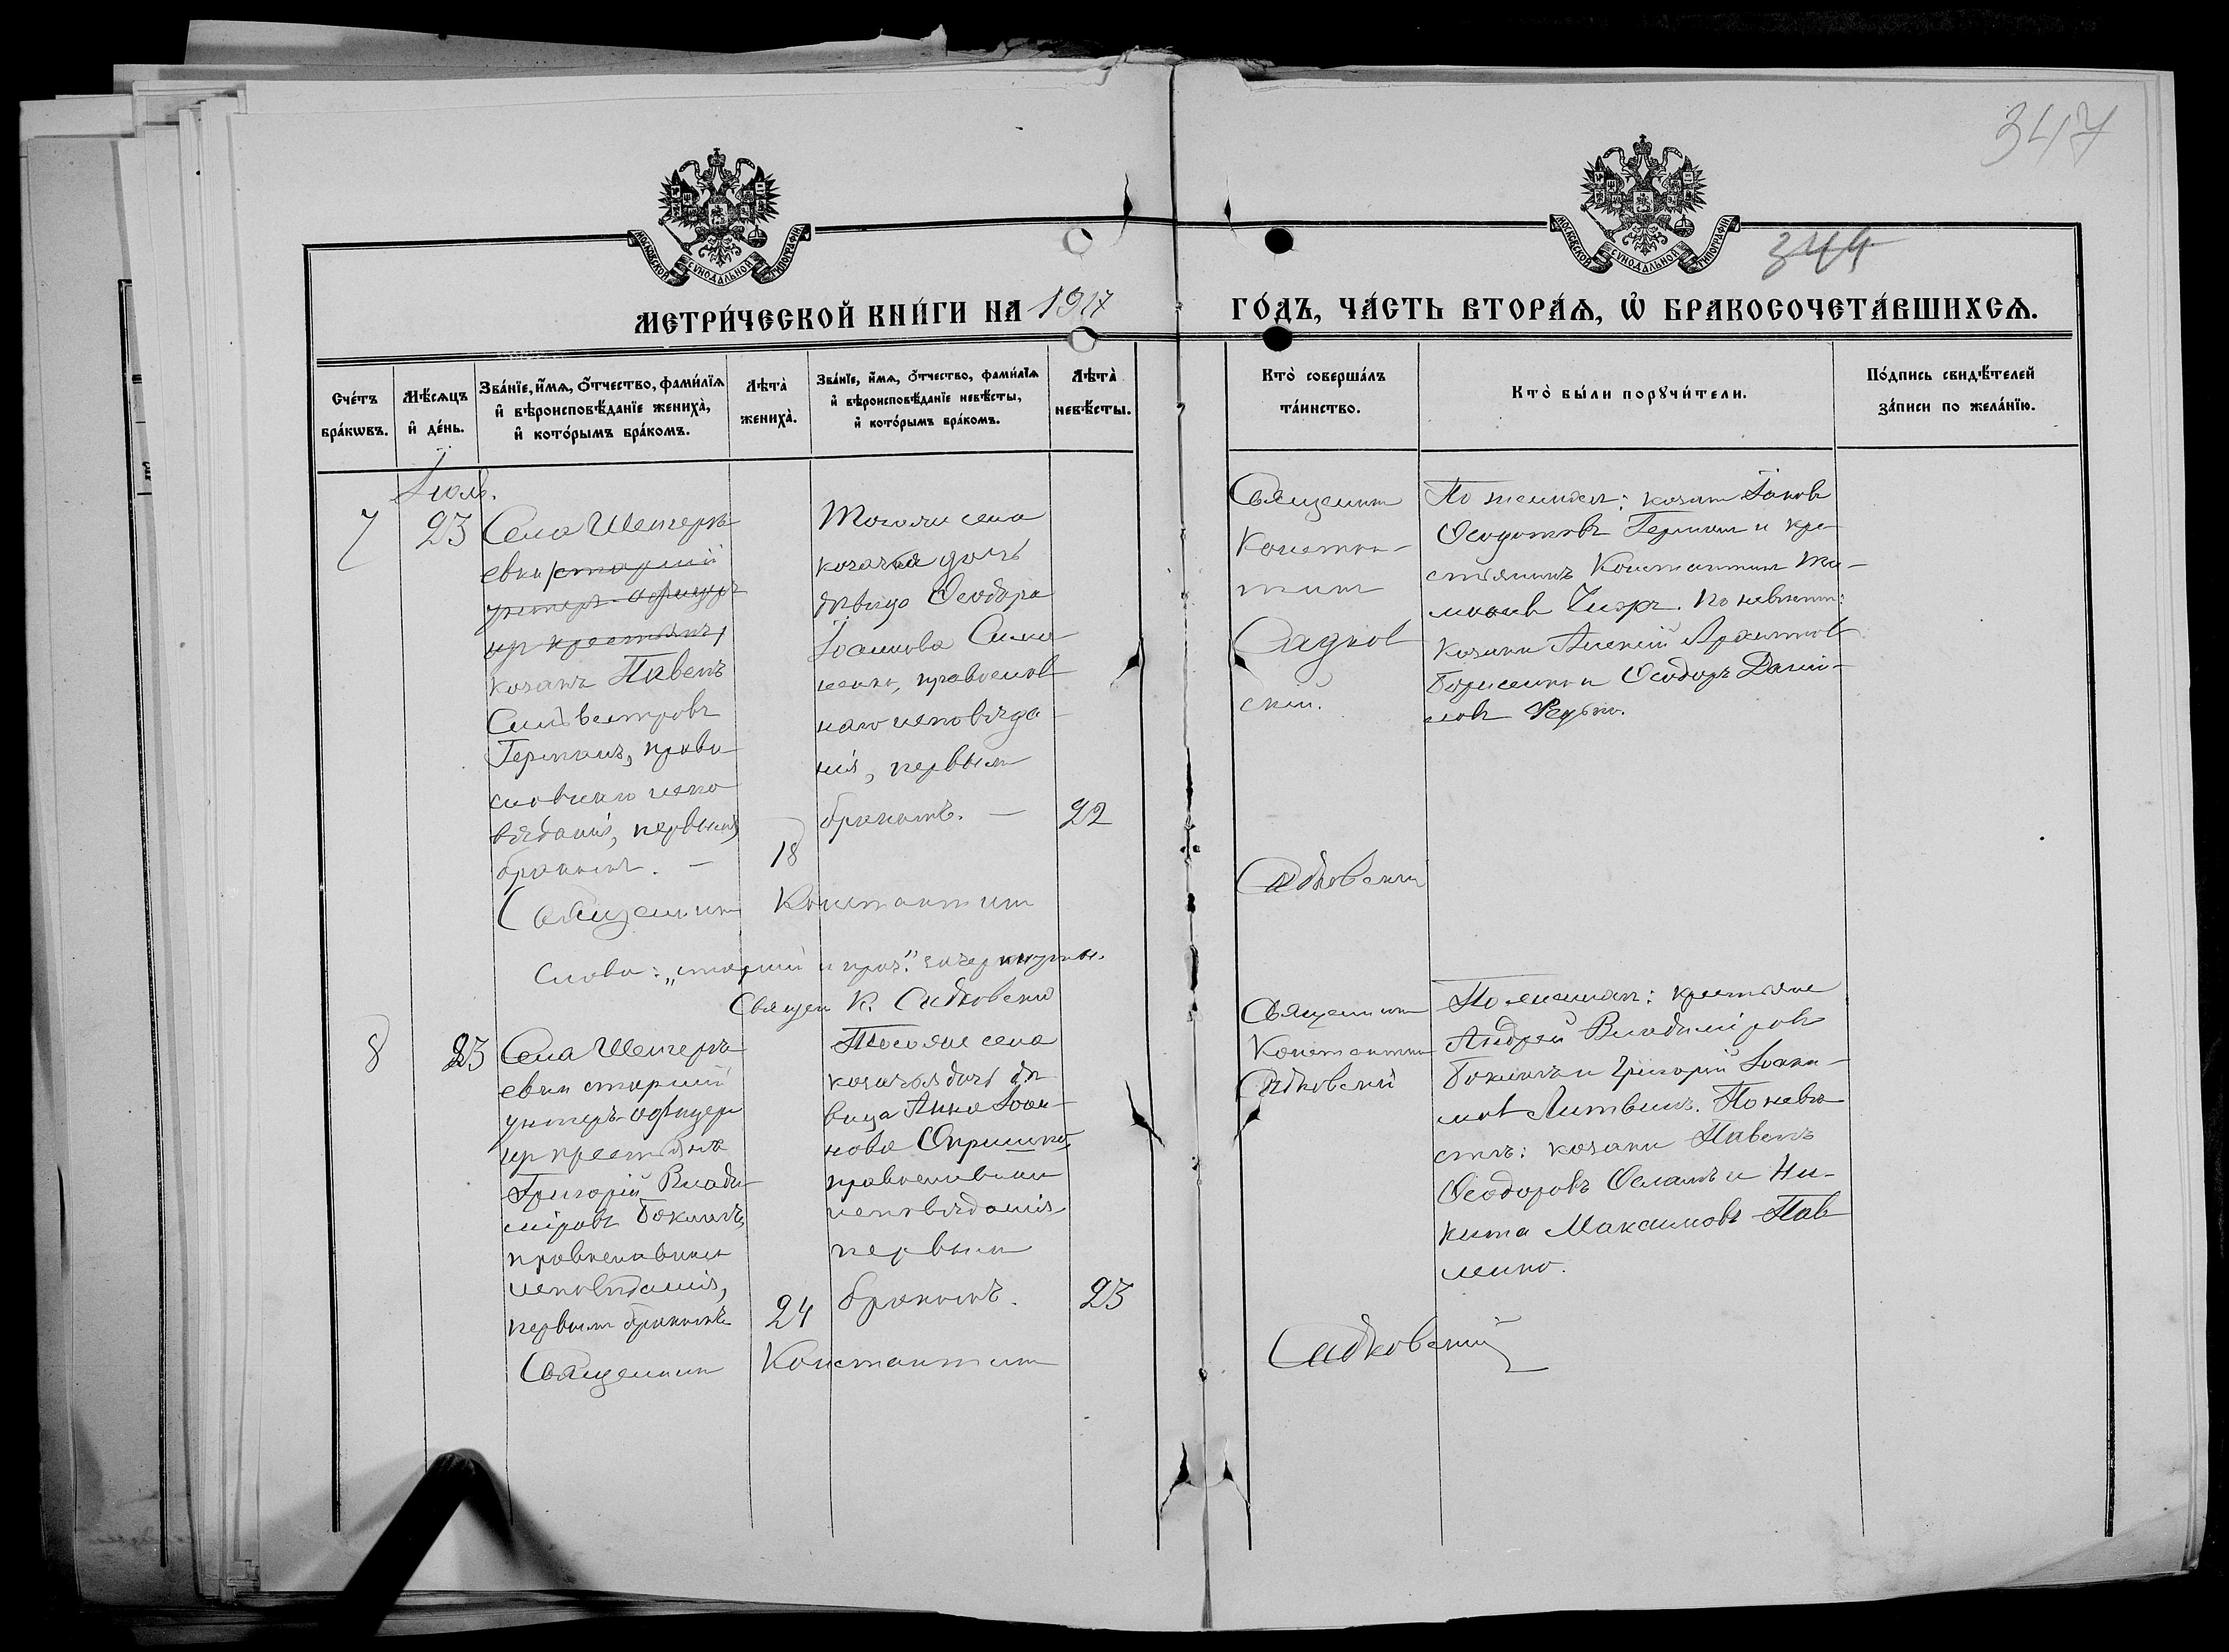 347
344
МОСКОВСКОЙ СѴНОДАЛЬНОЙ ТИПОГРАФІИ
МОСКОВСКОЙ СѴНОДАЛЬНОЙ ТИПОГРАФІИ
МЕТРИ́ЧЕСКОЙ КНИ́ГИ НА 1917 ГО́ДЪ, ЧА́СТЬ ВТОРА́Ѧ, Ѽ БРАКОСОЧЕТА́ВШИХСѦ.
Сче́тъ бра́кѡвъ.
Мѣ́сѧцъ и҆ де́нь.
Зва́нїе, и҆́мѧ, ѻ҆́тчество, фами́лїѧ и҆ вѣроисповѣ́данїе жениха̀, и҆ кото́рымъ бра́комъ.
Лѣта̀ жениха̀.
Зва́нїе, и҆́мѧ, ѻ҆́тчество, фами́лїѧ и҆ вѣроисповѣ́данїе невѣ́сты, и҆ кото́рымъ бра́комъ.
Лѣта̀ невѣ́сты.
Кто̀ соверша́лъ та́инство.
Кто̀ бы́ли порꙋчи́тели.
По́дпись свидѣ́телей за́писи по жела́нїю.
Іюль.
7
23
Села Шенгеръ-
евки /старшій
унтеръ-офицеръ
изъ крестьянъ/
козакъ Павелъ
Сильвестровъ
Германъ, право-
славнаго испо
вѣданія, первымъ
бракомъ. —
18
Тогоже села
козачка дочь
дѣвица Ѳеодора
Іоаннова
православ
наго исповѣда-
нія, первымъ
бракомъ. —
22
Священникъ
Констан-
тинъ
Садков
скій.
По женихѣ: козакъ Іаковъ
Ѳеодотовъ Герман и кре-
стьянинъ Константинъ
По невѣстѣ:
козаки Алексій
Борисенко и Ѳеодоръ Дани-
ловъ Редько.
Священникъ Константинъ Садковскій
Слова: „старшій и проч." зачеркнуты.
Священ К. Садковскій
8
23
Села Шенгеръ-
евки старшій
унтеръ-офицеръ
изъ крестьянъ
Григорій Влади-
міровъ Боклагъ,
православнаго
исповѣданія,
первымъ бракомъ
24
Тогоже села
козачья дочь дѣ
вица Анна Іоан-
нова Опришко,
православнаго
исповѣданія
первымъ
бракомъ.
23
Священникъ
Константинъ
Садковскій
По женихѣ: крестьяне
Андрей Владиміровъ
Боклагъ и Григорій Іоан-
новъ Литвинъ. По невѣ
стѣ: козаки Павелъ
Ѳеодоровъ и Ни-
кита Максимовъ Пав
ленко.
Священникъ Константинъ Садковскій